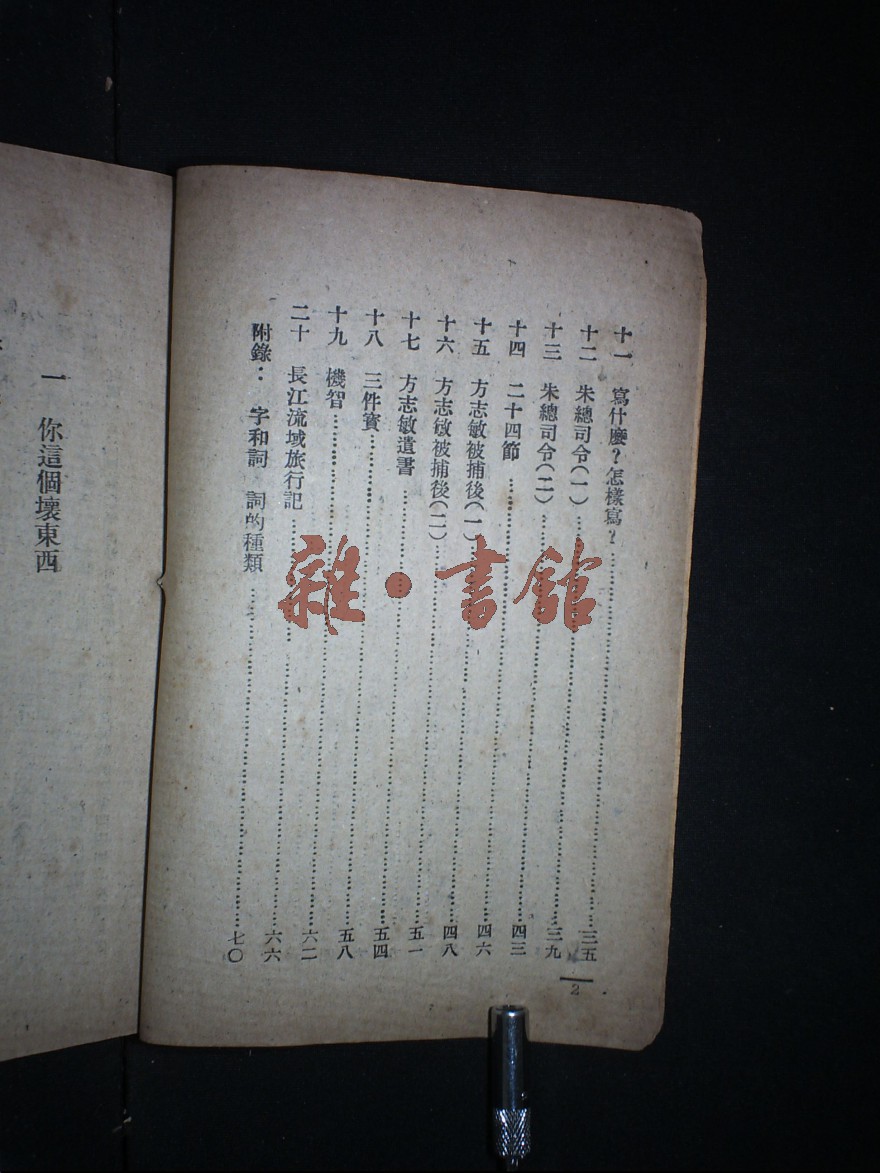 十一 寫什麼？怎樣寫？……三五
十二 朱總司令（一）……三九
十三 朱總司令（二）……四三
十四 二十四節……四六
十五 方志敏被捕後（一）……四八
十六 方志敏被捕後（二）……五一
十七 方志敏遺書……五四
十八 三件寶……五八
十九 機智……六二
二十 長江流域旅行記……六六
附錄：字和詞 詞的種類……七〇
2
一 你這個壞東西
雜·書館